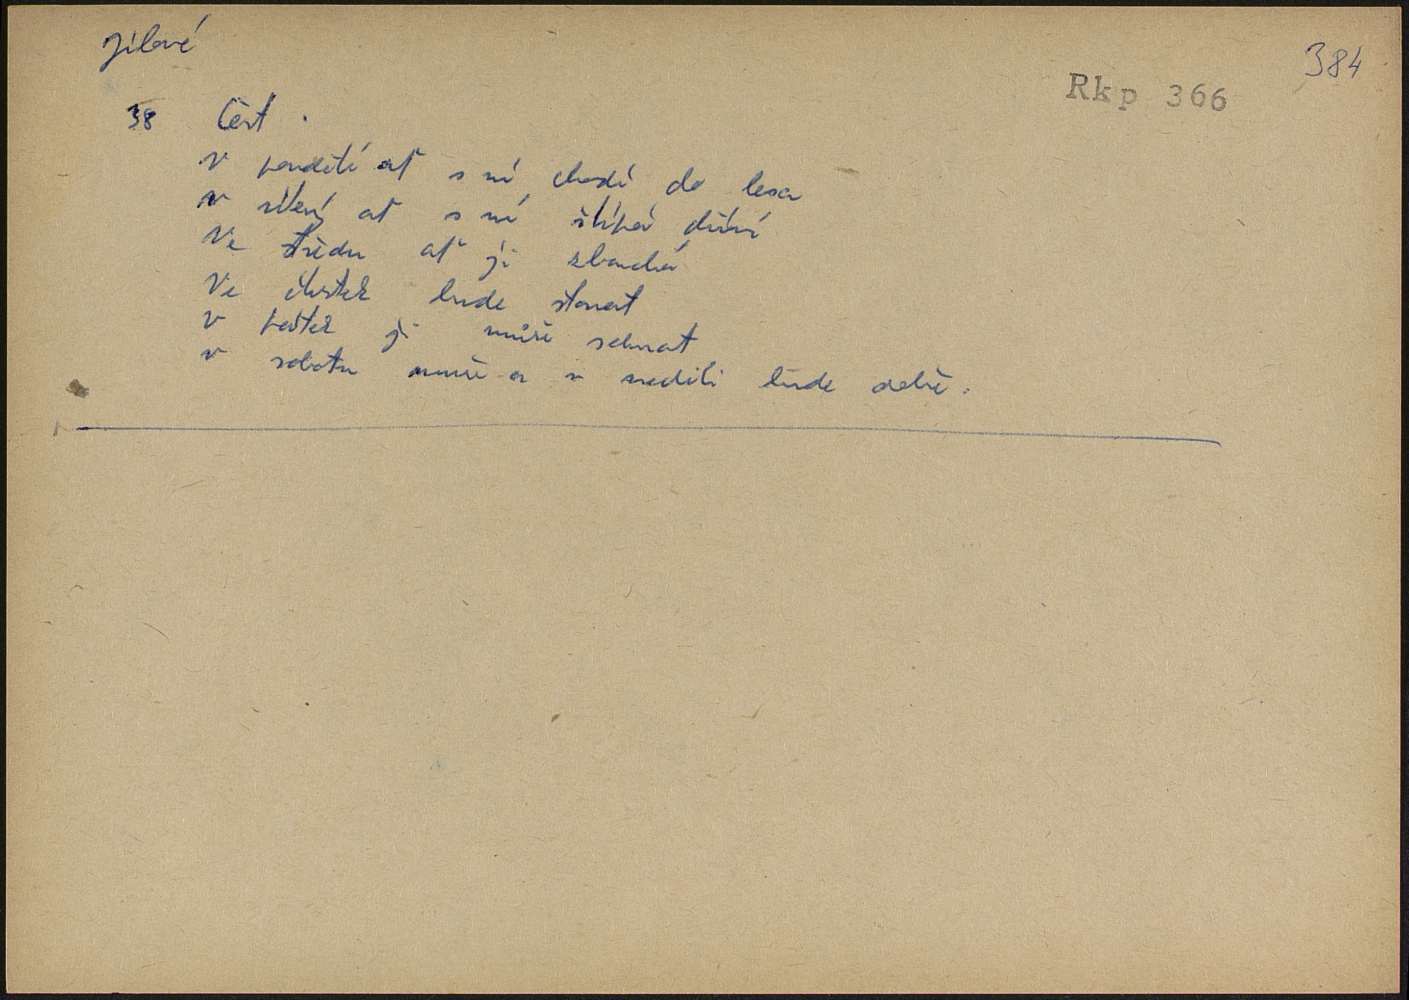 Jílové
384
Rkp 366
38 Čert.
V pondělí ať s ní chodí do lesa
V úterý ať s ní štípá dříví
Ve středu ať jí zbouchá
Ve čtvrtek bude stonat
V pátek jí může sehnat
V sobotu umře a v neděli bude